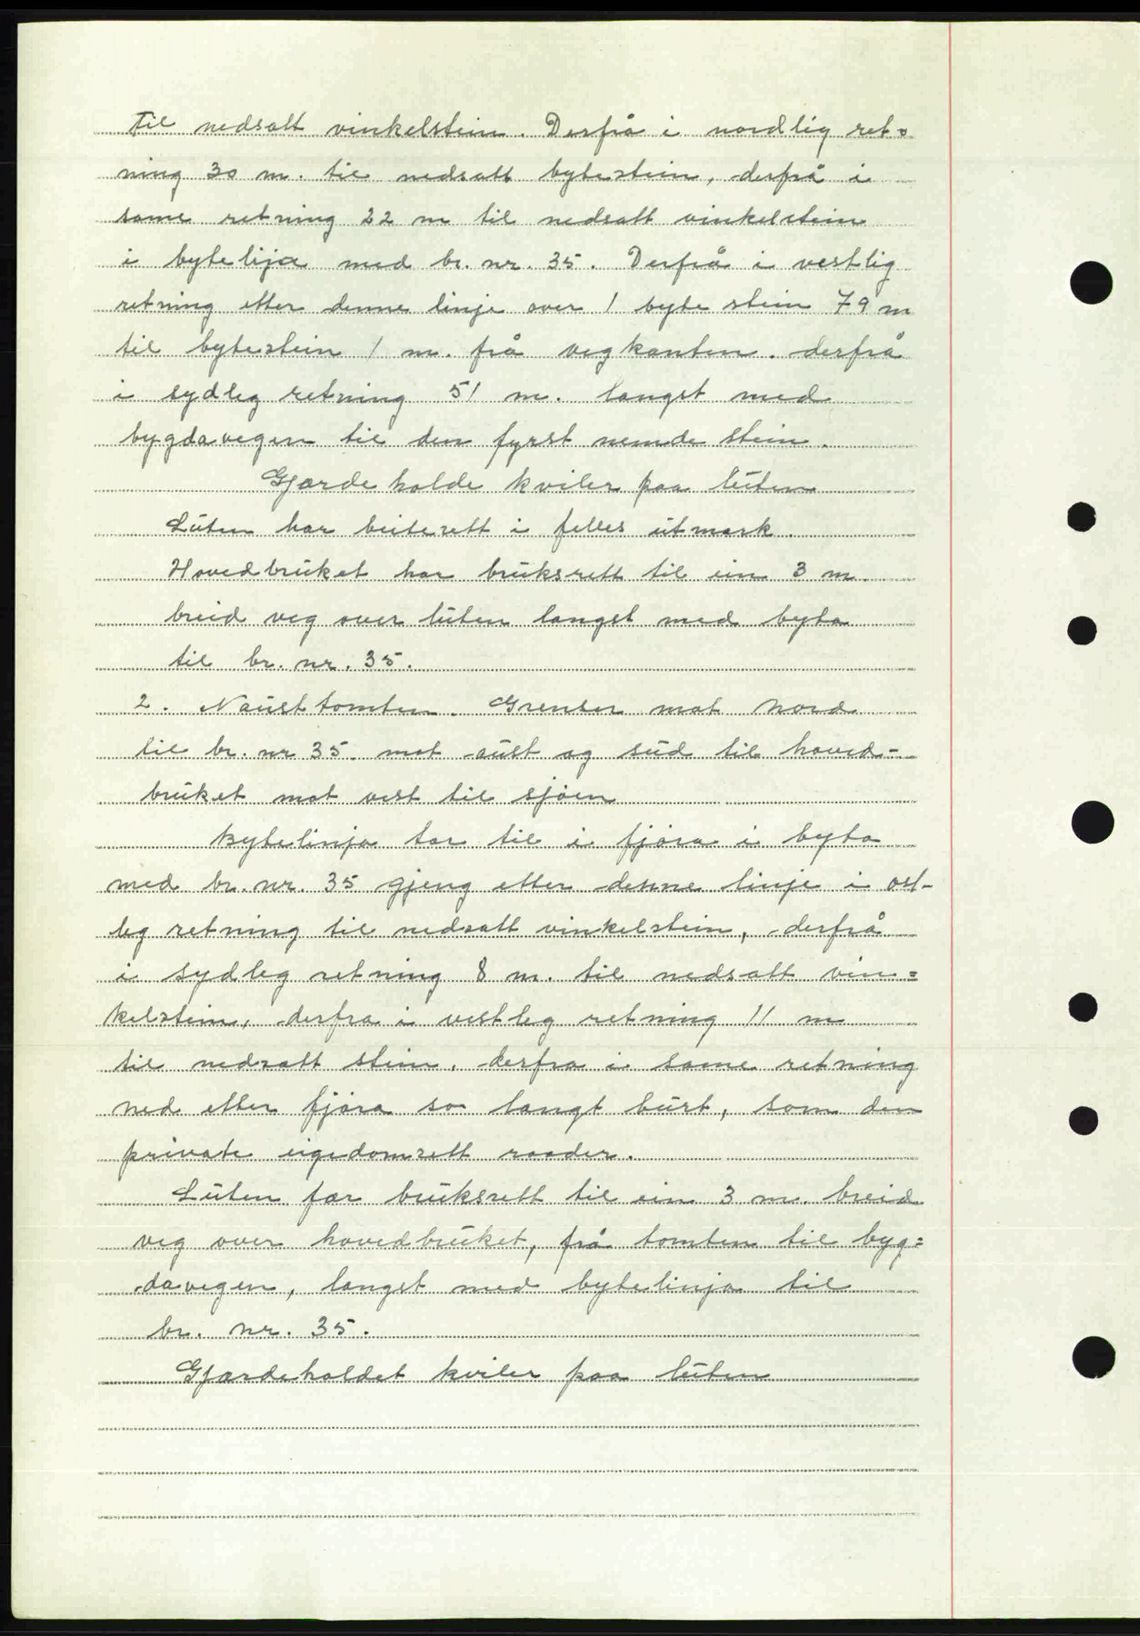 til nedsatt vinkelstein. Derfrå i nordlig ret=
ning 30 m. til nedsatt bytestein, derfrå i
same retning 22 m til nedsatt vinkelstein
i bytelija med br. nr. 35. Derfrå i vestlig
retning etter denne linje over 1 byte stein 79 m
til bytestein 1 m. frå vegkanten. derfrå
i sydleg retning 51 m. langst med
bygdavegen til den fyrst nemde stein.
Gjærde holde kviler paa luten
Luten har beiterett i felles utmark.
Hovedbruket har bruksrett til ein 3 m.
breid veg over luten langst med byta
til br. nr. 35.
2. Nausttomten. Grenser mot Nord
til br. nr 35. mot aust og sud til hoved-
bruket mot vest til sjøen
Bytelinja tar til i fjøra i byta
med br. nr. 35 gjeng etter denne linje i øst-
leg retning til nedsatt vinkelstein, derfrå
i sydleg retning 8 m. til nedsatt vin=
kelstein, derfra i vestleg retning 11 m
til nedsatt stein, derfra i same retning
ned etter fjøra so langt burt, som den
private eigedomsrett raader.
Luten får bruksrett til ein 3 m. breid
veg over hovedbruket, frå tomten til byg=
davegen, langst med bytelinja til
br. nr. 35.
Gjærdeholdet kviler paa luten